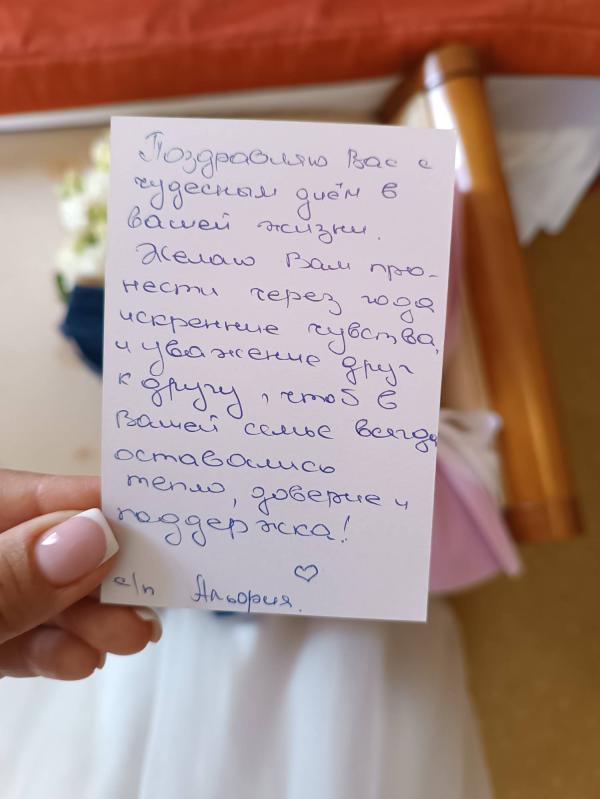 Поздравляю Вас с
чудесным днём в
вашей жизни.
Желаю Вам про-
нести через года
искренние чувства,
и уважение друг
к другу, чтоб в
Вашей семье всегда
оставались
тепло, доверие и
поддержка!
с/п Альфия.